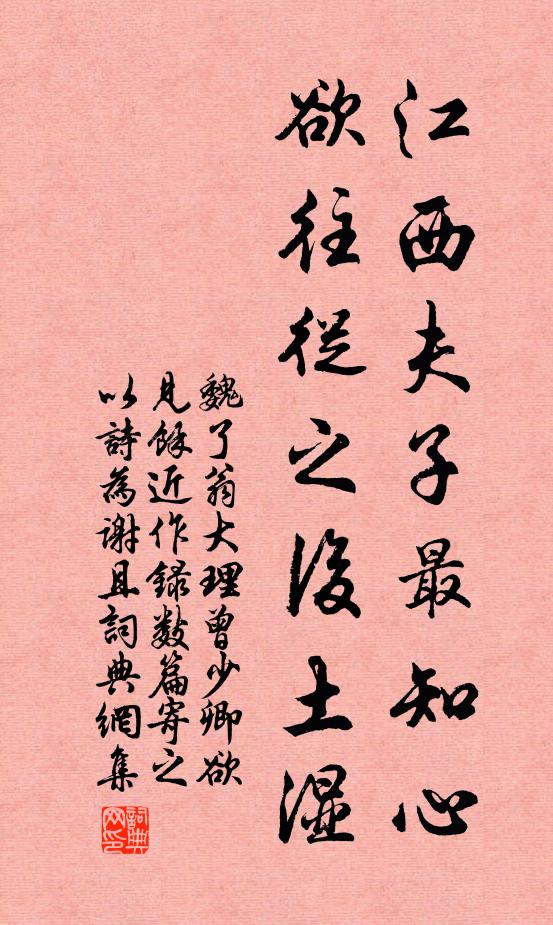 江西夫子最知心
欲往從之後土溼
魏了翁大理曾少卿欲
見餘近作錄數篇寄之
以詩為謝且詞典網集
詞典網印